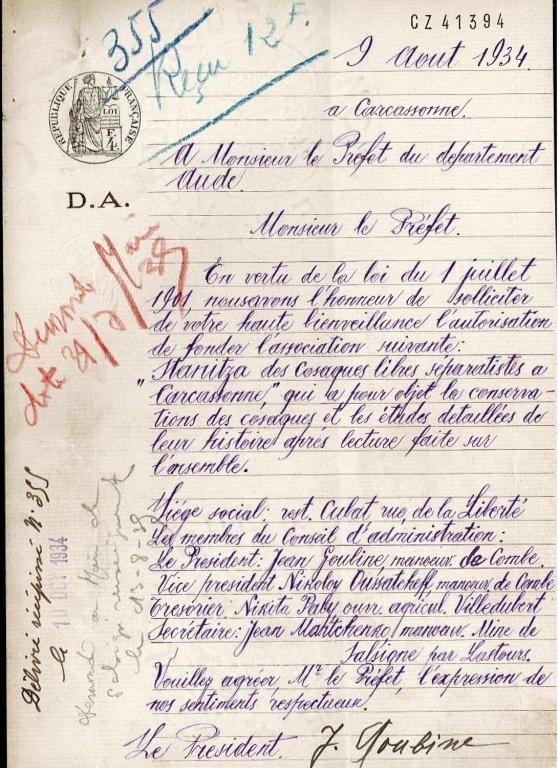 CZ 41394
355
Reçu 12 F.
9 Aout 1934.
a Carcassonne.
RÉPUBLIQUE FRANÇAISE
LOI
F. 4
D.A.
A Monsieur le Préfet du département
Aude.
Monsieur le Préfet.
En vertu de la loi du 1 juillet
1901 nousavons l'honneur de solliciter
de votre haute bienveillance l'autorisation
de fonder l'association suivante:
Stanitza des Cosaques libres separatistes a
"Carcassonne," qui a pour objet la conserva-
tions des cosaques et les études detaillées de
leur histoire après lecture faite sur
l'ensemble.
Siége social: rest. Cubat rue de la Liberté
Les membres du Conseil d'administration:
Le President: Jean Goubine manoeuv. de Combe.
Vice président Nikoloy Oussatcheff manoeuv. de Combe
Tresorier. Nikita Raby ouvr. agricul. Villedubert
Secrétaire: Jean Martchenko, manoeuv. Mine de
Salsigne par Lastours.
Vouillez agréer, Mr le Préfet, l'expression de
nos sentiments respectueuse.
Le President. J. Goubine
Délivré récépissé N° 355
le 10 OCT 1934